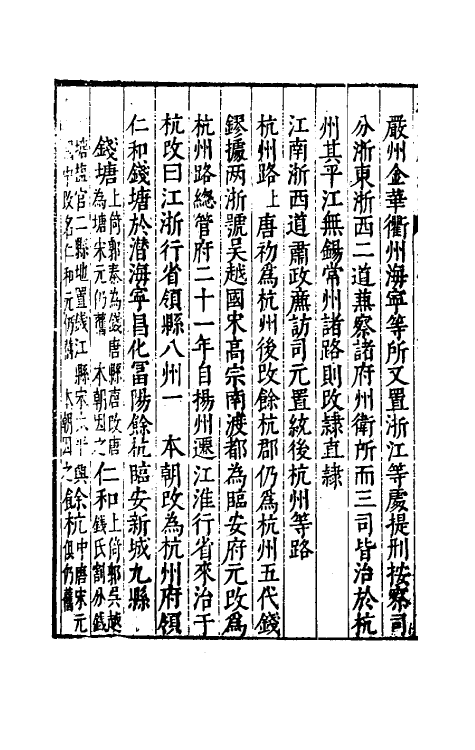 嚴州金華衢州海寧等所又置浙江等處提刑按察司
分浙東浙西二道兼察諸府州衛所而三司皆治於杭
州其平江無錫常州諸路則改隸直隸
江南浙西道肅政廉訪司元置統後杭州等路
杭州路上唐初爲杭州後改餘杭郡仍爲杭州五代錢
鏐據两浙號吴越國宋高宗南渡都為臨安府元改為
杭州路緫管府二十一年自揚州遷江淮行省來治于
杭改曰江浙行省領縣八州一 本朝改為杭州府領
仁和錢塘於潜海寧昌化富陽餘杭臨安新城九縣
錢塘上倚郭秦為錢唐縣唐改唐為塘宋元仍舊 本朝因之仁和上倚郭吴越錢氏割分錢
塘鹽官二縣地置錢江縣宋太平興國中改名仁和元仍舊 本朝因之餘杭中唐宋元俱仍舊